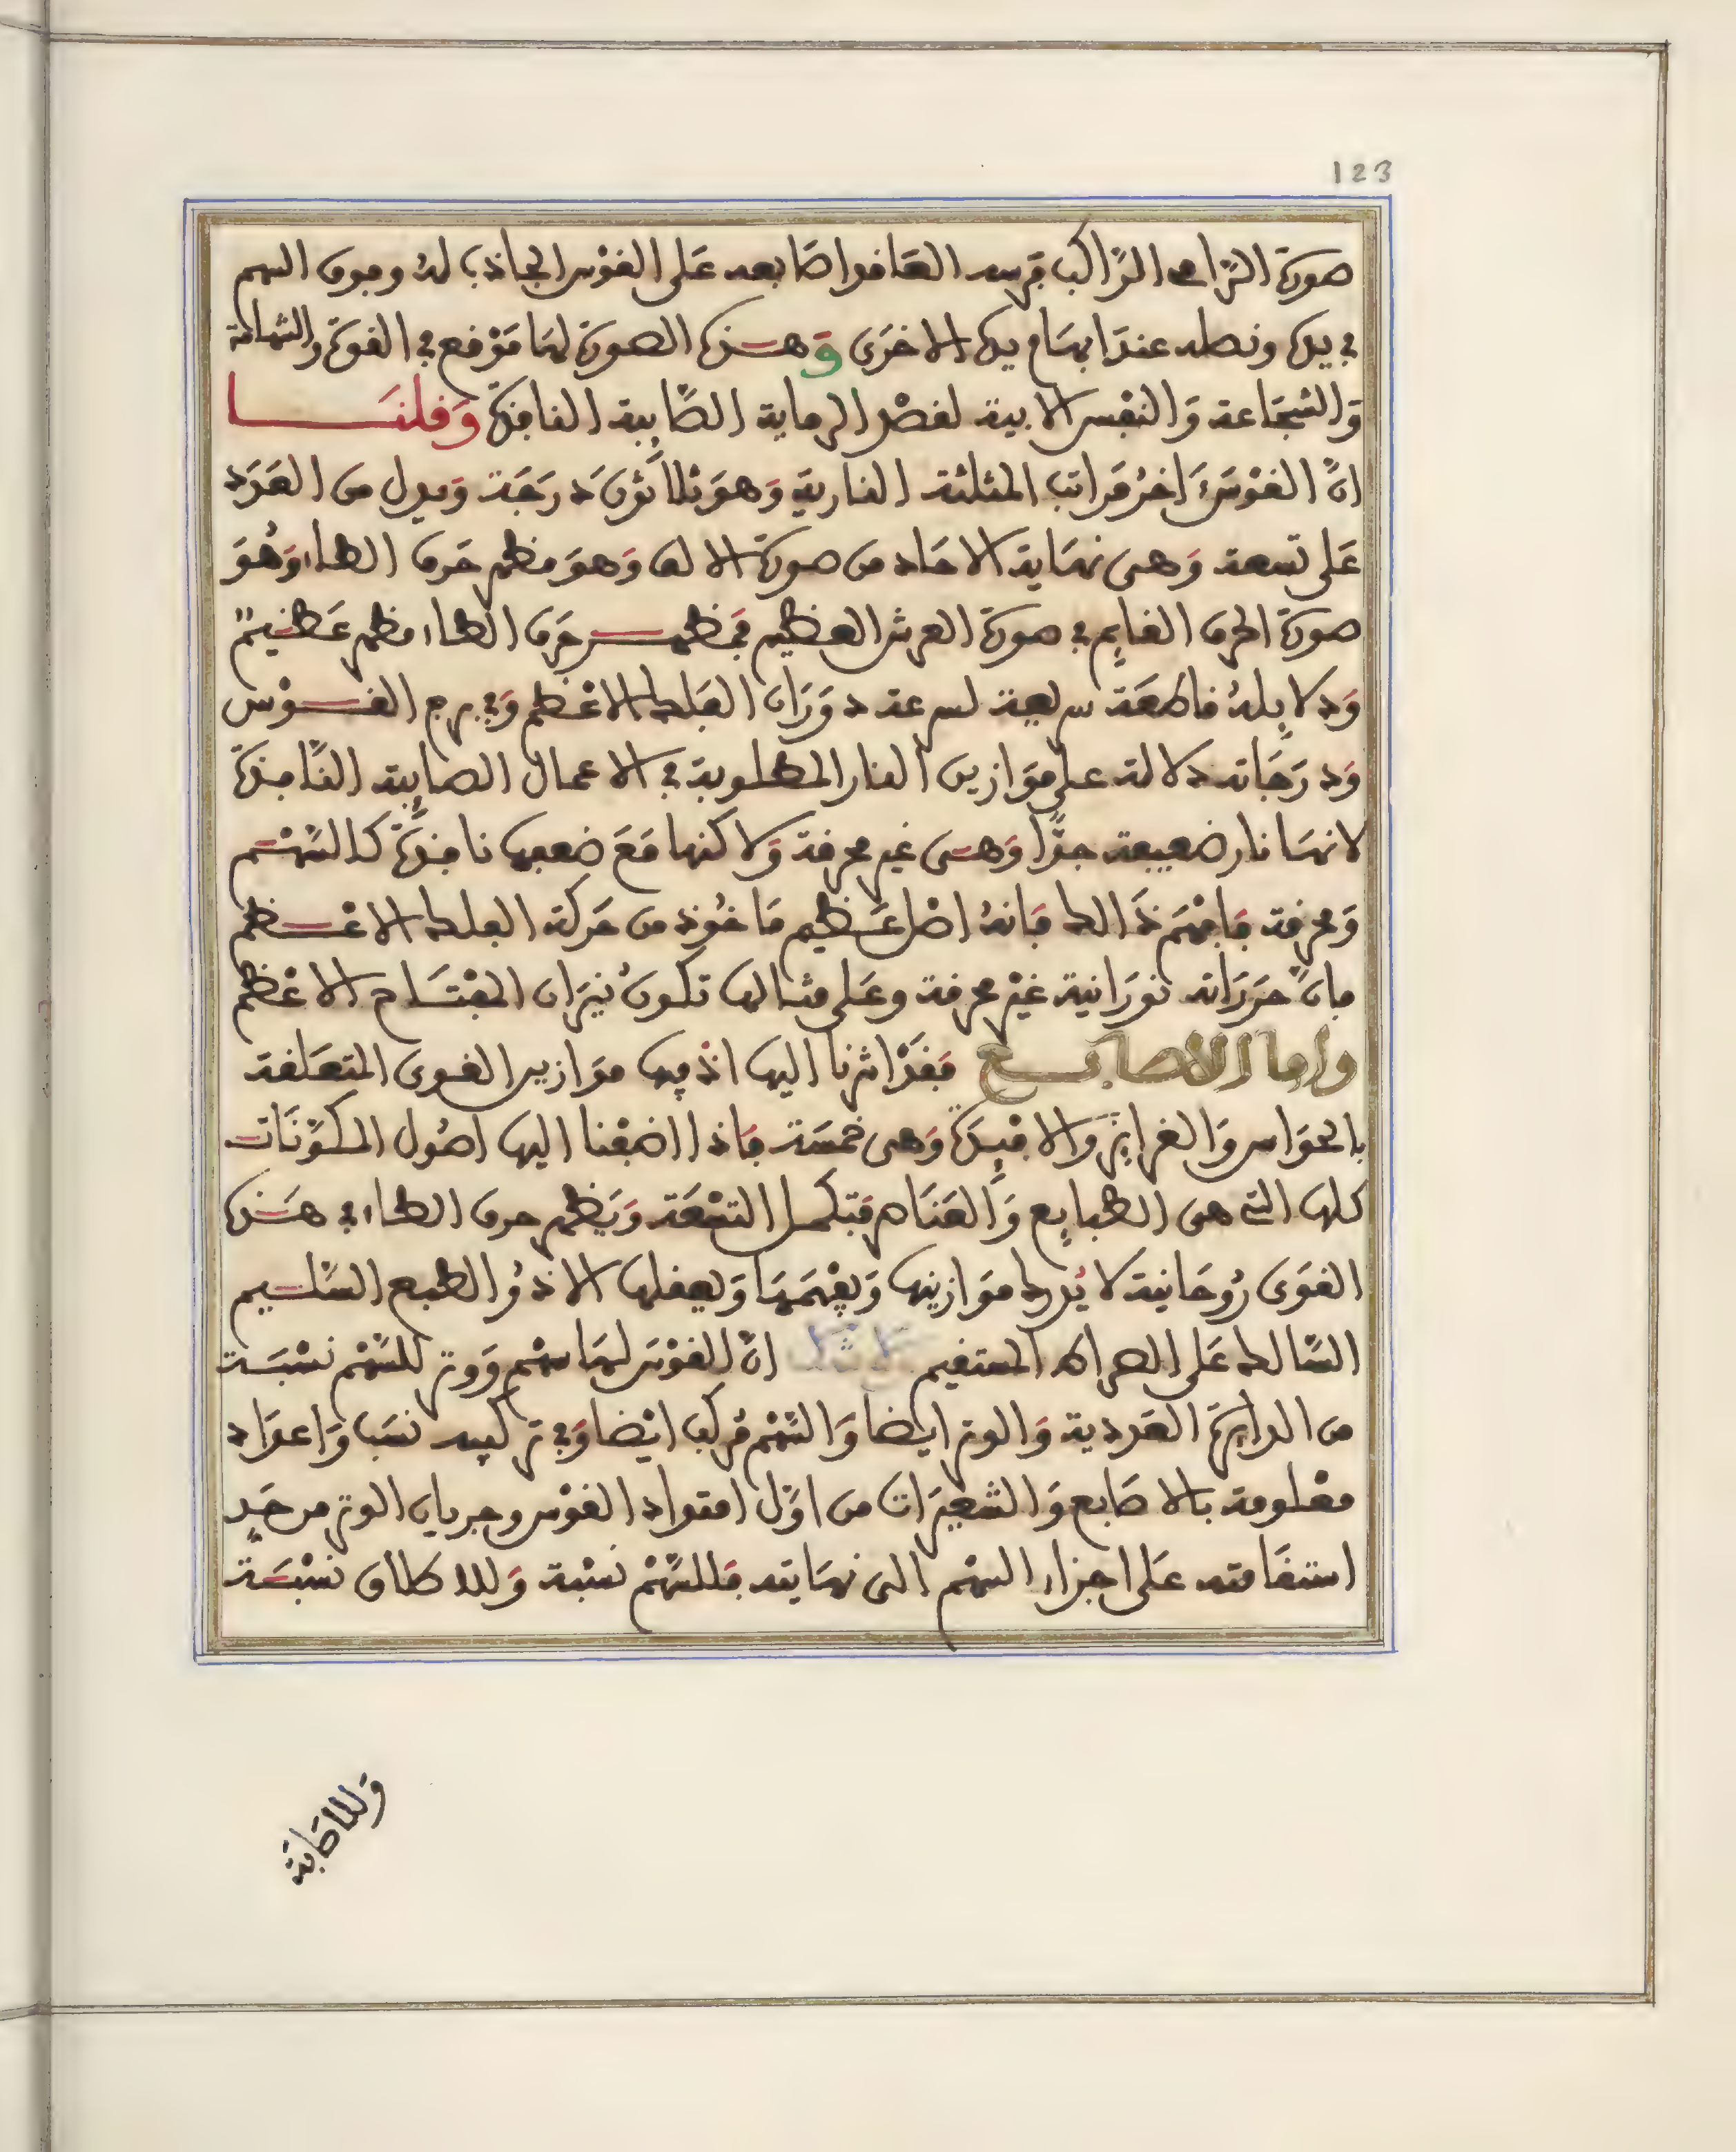 123
صورة الرامى الراكب فرسه العاقد اصابعه على القوس الجاذب له وفوق السهم
فى يده ونصله عند ابهام يده الاخرى وهذه الصورة لها موقع فى القوة والشهامة
والشجاعة والنفس الابية لقصد الرماية الصايبة النافذة وقلنا
ان القوس اخر مراتب المثلثة النارية وهو ثلاثون درجة ويدل من العدد
على تسعة وهى نهاية الاحاد من صورة الالف وهو مظهر حرف الطاء وهو
صورة الحرف القايم فى صورة العرش العظيم فمظهر حرف الطاء مظهر عظيم
ودلايله قاطعة سريعة لسرعة دوران الفلك الاعظم وفى برج القوس
ودرجاته دلالة على موازين النار المطلوبة فى الاعمال الصايبة النافذة
لانها نار ضعيفة جدا وهى غير محرقة ولاكنها مع ضعفها نافذة كالسهم
ومحرقة فافهم ذالك فانه اصل عظيم ماخوذ من حركة الفلك الاعظم
فان حررانه نورانية غير محرقة وعلى مثالها تكون نيران المفتاح الاعظم
واما الاصابع فقد اشرنا اليها اذ فيها موازين القوى المتعلقة
بالحواس والغرايز والافيدة وهى خمسة فاذا اضفنا اليها اصول المكونات
كلها التى هى الطبايع والعناصر فتكمل التسعة ويظهر حرف الطاء فى هذه
القوى روحانية لا يدرك موازينها ويفهمها ويعقلها الا ذو الطبع السليم
السالك على الصراط المستقيم ان القوس لها سهم ووتر للسهم نسبة
من الدايرة العددية والوتر ايضا والسهم مركب ايضا وفى تركيبه نسب واعداد
معلومة بالاصابع والشعيرات من اول امتداد القوس وجريان الوتر من حد
استقامته على اجزاء السهم الى نهايته فللسهم نسبة وللاطلاق نسبة
وللاصابة